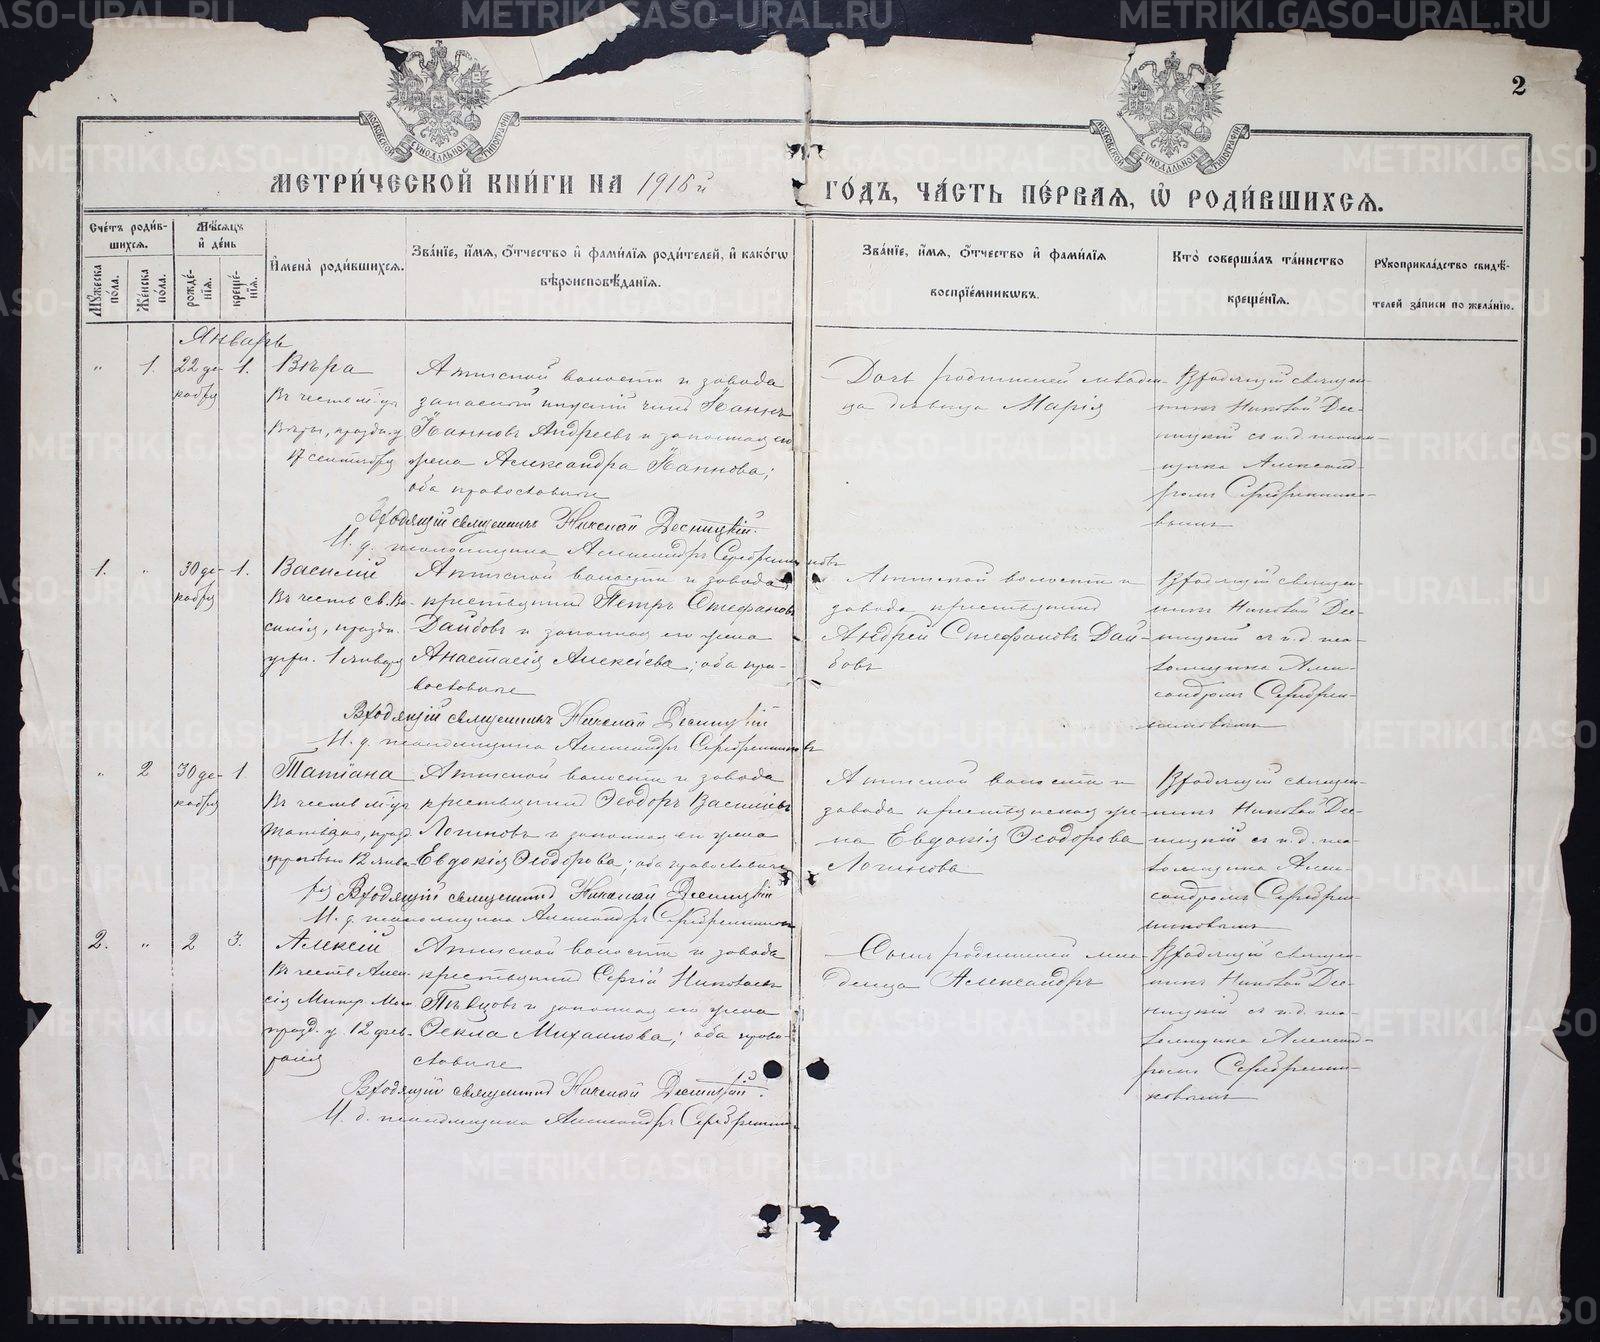 2
МОСКОВСКОЙ СѴНОДАЛЬНОЙ ТИПОГРАФІИ
МОСКОВСКОЙ СѴНОДАЛЬНОЙ ТИПОГРАФІИ
МЕТРИ́ЧЕСКОЙ КНИ́ГИ НА 1916й ГО́ДЪ, ЧА́СТЬ ПЕ́РВАЯ, Ѡ҆ РОДИ́ВШИХСЯ.
Сче́тъ роди́вшихся.
Мѣ́сяцъ и҆ де́нь
Мꙋ́жеска по́ла.
Же́нска по́ла.
рожде́нїя.
креще́нїя.
И҆мена̀ роди́вшихся.
Зва́нїе, и҆́мя, ѻ҆́тчество и҆ фами́лїя роди́телей, и҆ како́гѡ вѣроисповѣ́данїя.
Зва́нїе, и҆́мя, ѻ҆́тчество и҆ фами́лїя воспрїе́мникѡвъ.
Кто̀ соверша́лъ та́инство креще́нїя.
Рꙋкоприкла́дство свидѣ́телей за́писи по жела́нїю.
Январь
" 1. 22 де- 1. Вѣра
кабря
Въ честь м-цы
Вѣры, праздн. у
17 сентября
Атигской волости и завода
запасной
Іоанновъ Андреевъ и законная его
жена Александра Іаннова;
оба православные
Входящій священникъ Николай Десницкій.
И. д. псаломщика Александръ Серебренниковъ
Дочь родителей младен-
ца дѣвица Марія
Входящій священ-
никъ Николай Дес-
ницкій съ и. д. псалом-
щика Александ-
ромъ Серебреннико-
вымъ
1. " 30 де- 1. Василій
кабря
Въ честь св. Ва-
силія, праздн.
1 января
Атигской волости и завода
крестьянинъ Петръ Стефановъ
Дайбовъ и законная его жена
Анастасія Алексіева; оба пра-
вославные
Входящій священникъ Николай Десницкій
И. д. псаломщика Александръ Серебренниковъ
Атигской волости и
завода крестьянинъ
Андрей Стефановъ Дай-
бовъ
Входящій священ-
никъ Николай Дес-
ницкій съ и. д. пса-
ломщика Алек-
сандромъ Серебрен-
никовымъ
" 2 30 де- 1 Татіана
кабря
Въ честь м-цы
Татіаны, празд.
12 янва-
ря
Атигской волости и завода
крестьянинъ Ѳеодоръ Василіевъ
Логиновъ и законная его жена
Евдокія Ѳеодорова; оба православные
Входящій священникъ Николай Десницкій
И. д. псаломщика Александръ Серебренниковъ
Атигской волости и
завода крестьянская же-
на Евдокія Ѳеодорова
Логинова
Входящій священ-
никъ Николай Дес-
ницкій съ и. д. пса-
ломщика Алек-
сандромъ Серебрен-
никовымъ
2. " 2 3. Алексій
Въ честь Алек-
сія Митр. Моск.
празд. у 12 фев-
раля
Атигской волости и завода
крестьянинъ Сергій Николаевъ
Пѣвцовъ и законная его жена
Ѳекла Михаилова; оба право-
славные
Входящій священникъ Николай Десницкій.
И. д. псаломщика Александръ Серебренник
Сынъ родителей мла-
денца Александръ
Входящій священ-
никъ Николай Дес-
ницкій съ и. д. пса-
ломщика Александ-
ромъ Серебренни-
ковымъ
METRIKI.GASO-URAL.RU